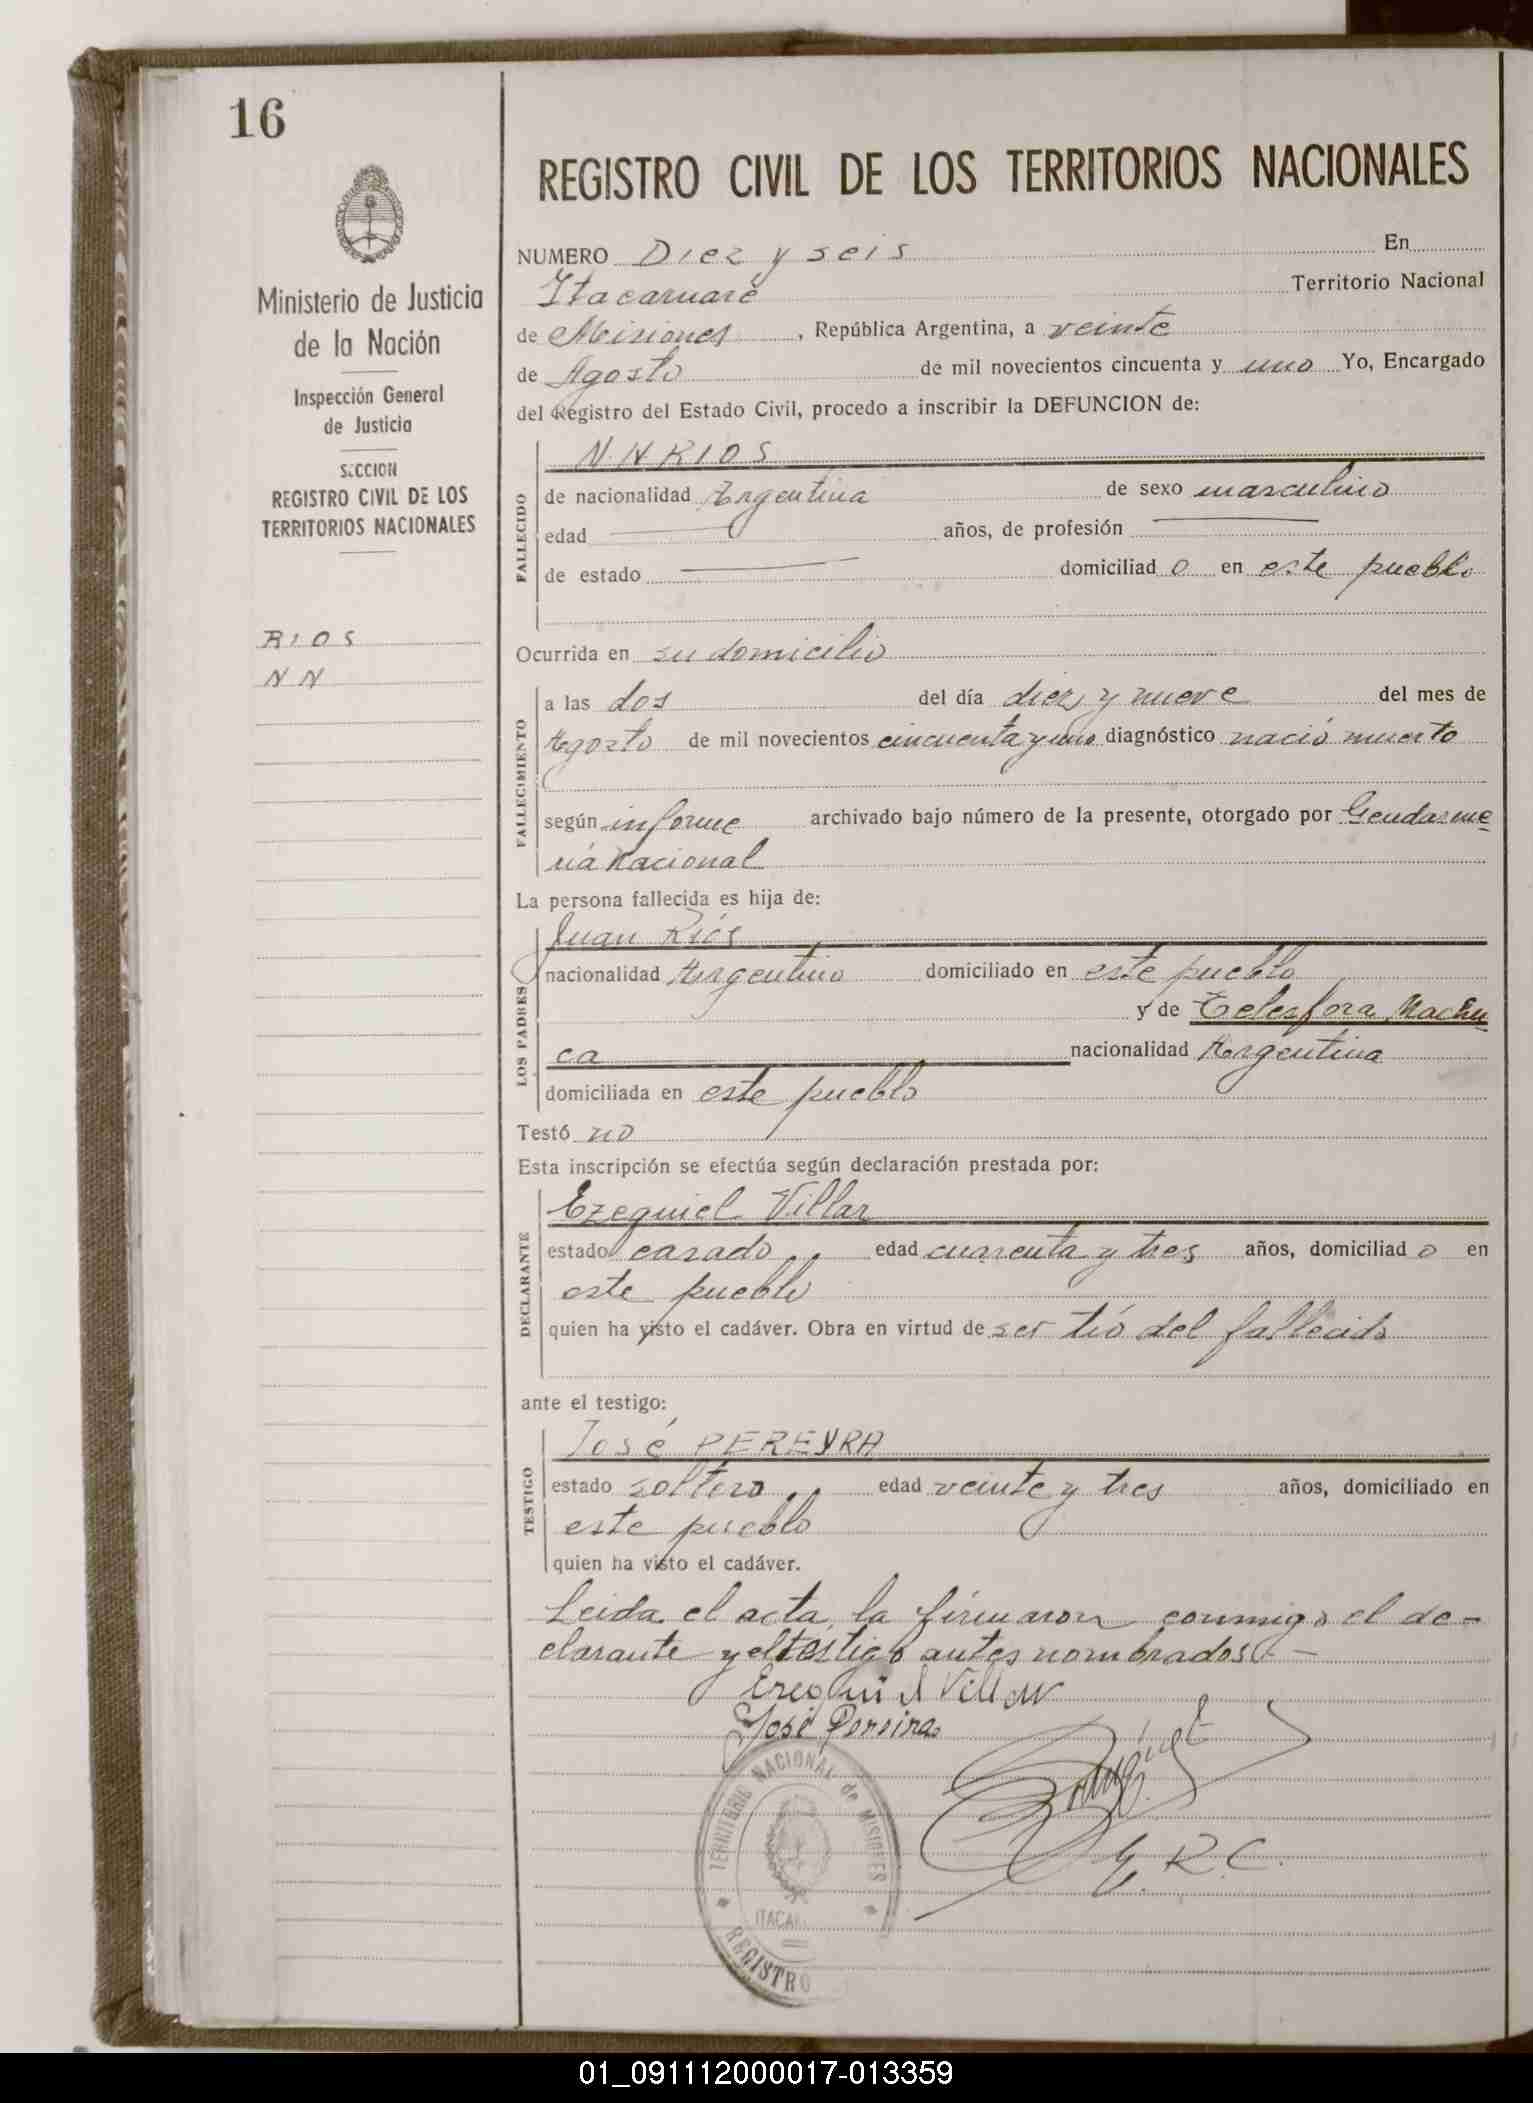 16
REGISTRO CIVIL DE LOS TERRITORIOS NACIONALES
Ministerio de Justicia
de la Nación
Inspección General
de Justicia
SECCION
REGISTRO CIVIL DE LOS
TERRITORIOS NACIONALES
RIOS
NN
NUMERO Diez y seis En
Itacaruaré Territorio Nacional
de Misiones, República Argentina, a veinte
de Agosto de mil novecientos cincuenta y uno Yo, Encargado
del Registro del Estado Civil, procedo a inscribir la DEFUNCION de:
N.N RIOS
FALLECIDO
de nacionalidad Argentina de sexo masculino
edad años, de profesión
de estado domiciliad o en este pueblo
Ocurrida en su domicilio
FALLECIMIENTO
a las dos del día diez y nueve del mes de
Agosto de mil novecientos cincuenta y uno diagnóstico nació muerto
según informe archivado bajo número de la presente, otorgado por Gendarme
ría Nacional
La persona fallecida es hija de:
LOS PADRES
Juan Ríos
nacionalidad Argentino domiciliado en este pueblo
y de Telesfora Machu
ca nacionalidad Argentina
domiciliada en este pueblo
Testó no
Esta inscripción se efectúa según declaración prestada por:
DECLARANTE
Ezequiel Villar
estado casado edad cuarenta y tres años, domiciliad o en
este pueblo
quien ha visto el cadáver. Obra en virtud de ser tío del fallecido
ante el testigo:
TESTIGO
José PEREYRA
estado soltero edad veinte y tres años, domiciliado en
este pueblo
quien ha visto el cadáver.
Leida el acta, la firmaron conmigo el de-
clarante y el testigo antes nombrados.-
Ezequiel Villar
José Pereira
E.R.C.
TERRITORIO NACIONAL de MISIONES
ITACA
REGISTRO
01_091112000017-013359